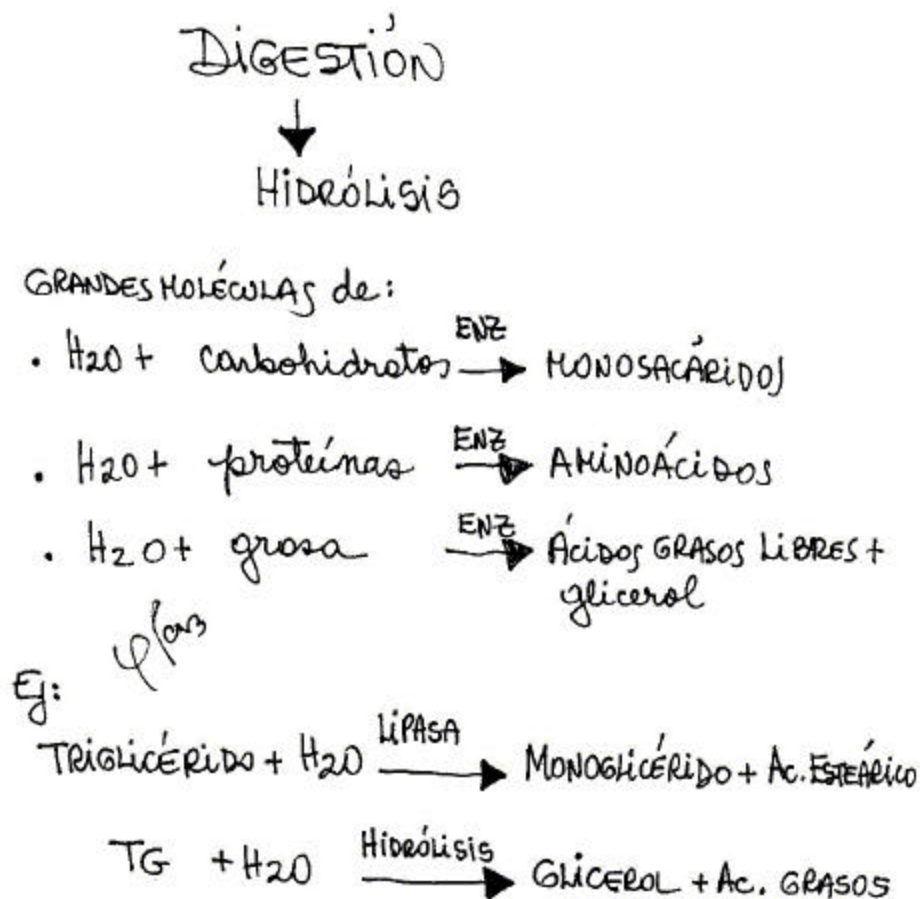 DIGESTIÓN
HIDRÓLISIS
GRANDES MOLÉCULAS de:
. H2O + carbohidratos ENZ → MONOSACÁRIDOS
. H2O + proteínas ENZ → AMINOÁCIDOS
. H2O + grasa ENZ → ÁCIDOS GRASOS LIBRES +
glicerol
Ej:
TRIGLICÉRIDO + H2O LIPASA → MONOGLICÉRIDO + Ac. ESTEÁRICO
TG + H2O HIDRÓLISIS → GLICEROL + Ac. GRASOS